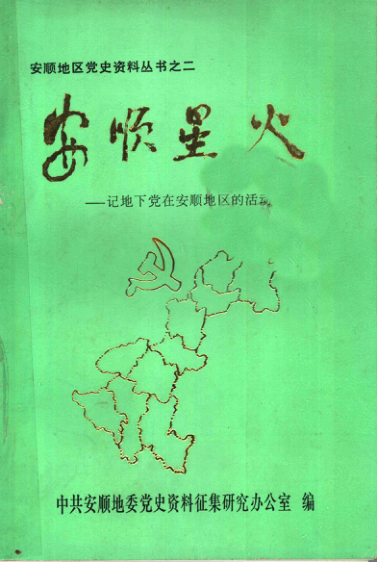 安顺地区党史资料丛书之二
安顺星火
——记地下党在安顺地区的活动
中共安顺地委党史资料征集研究办公室 编